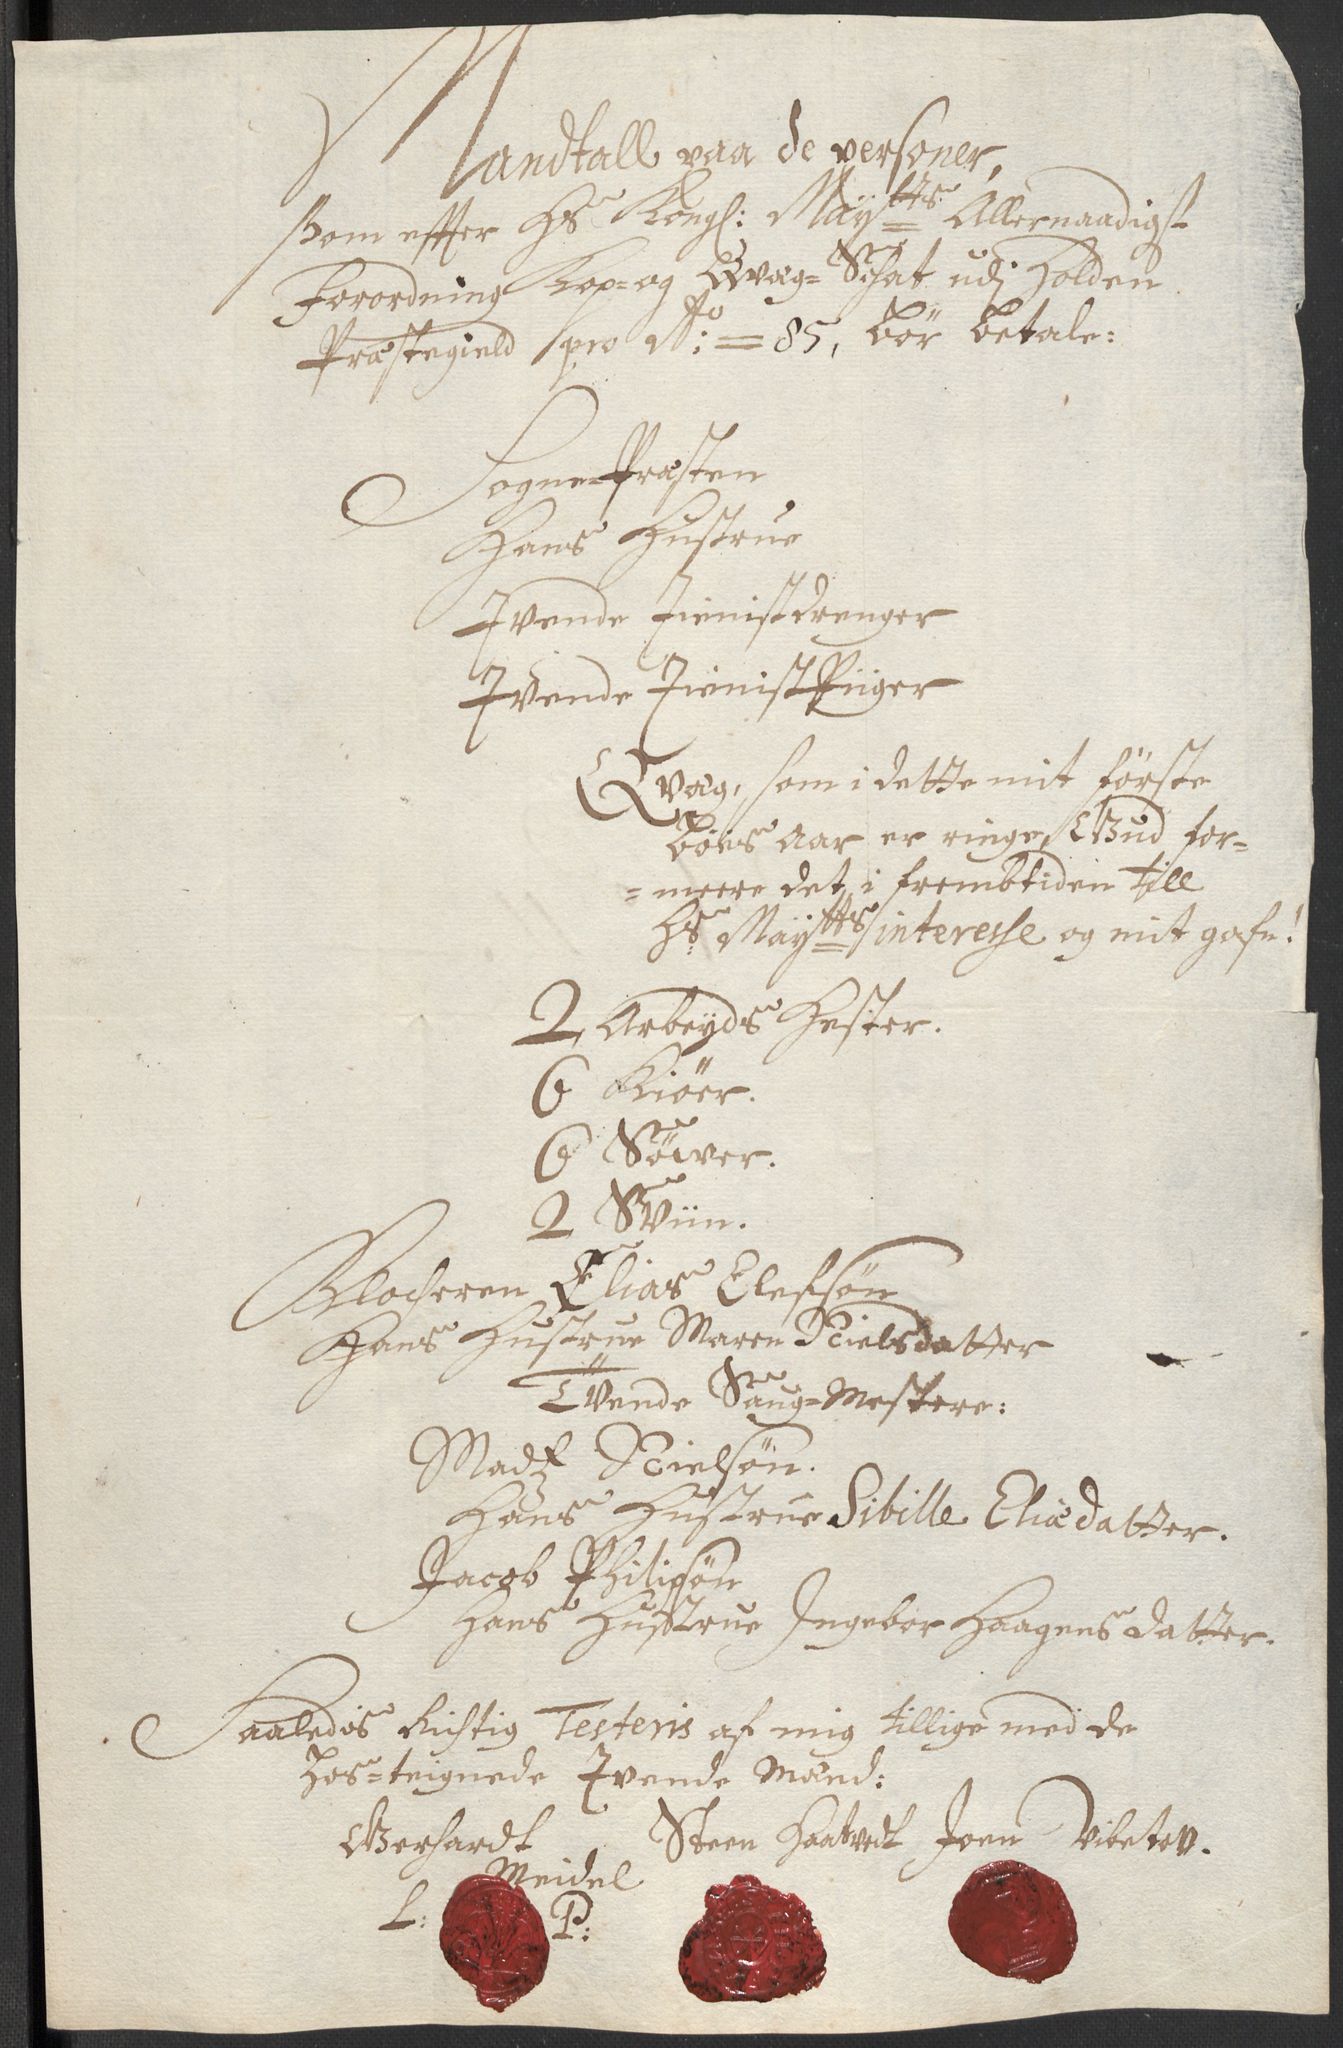 Mandtall paa de personer,
Som efter Hs Kongl: Maÿtts Allernaadigst
Forordning Kop= og Qvæg= Schat udj Holden
Præstegield pro Ao: = 85, bör betale:
Sogne=Præsten
Hans Hustrue
Tvende Tienistdrenger
Tvende TienistPiiger
Qvæg, som i dette mit förste
böes aar er ringe, Gud for=
=meere det i frembtiden till
Hs Maÿtts interesse og mit gafn!
2, Arbeÿds Hester.
6 Kiöer.
6 Söwer.
2 Sviin.
Klocheren Elias Elefsön
Hans Hustrue Maren Nielsdatter
Tvende Saug=Mestere:
Madtz Nielsön.
Hans Hustrue Sibille Eliædatter.
Jacob Philipsön
Hans Hustrue Ingebor Haagens datter.
Saaledis Richtig Testeris af mig tillige med de
hos=teignede Tvende Mænd:
Gerhardt Steen Haatvedt Joen Vibeto
Meidel
L: P: